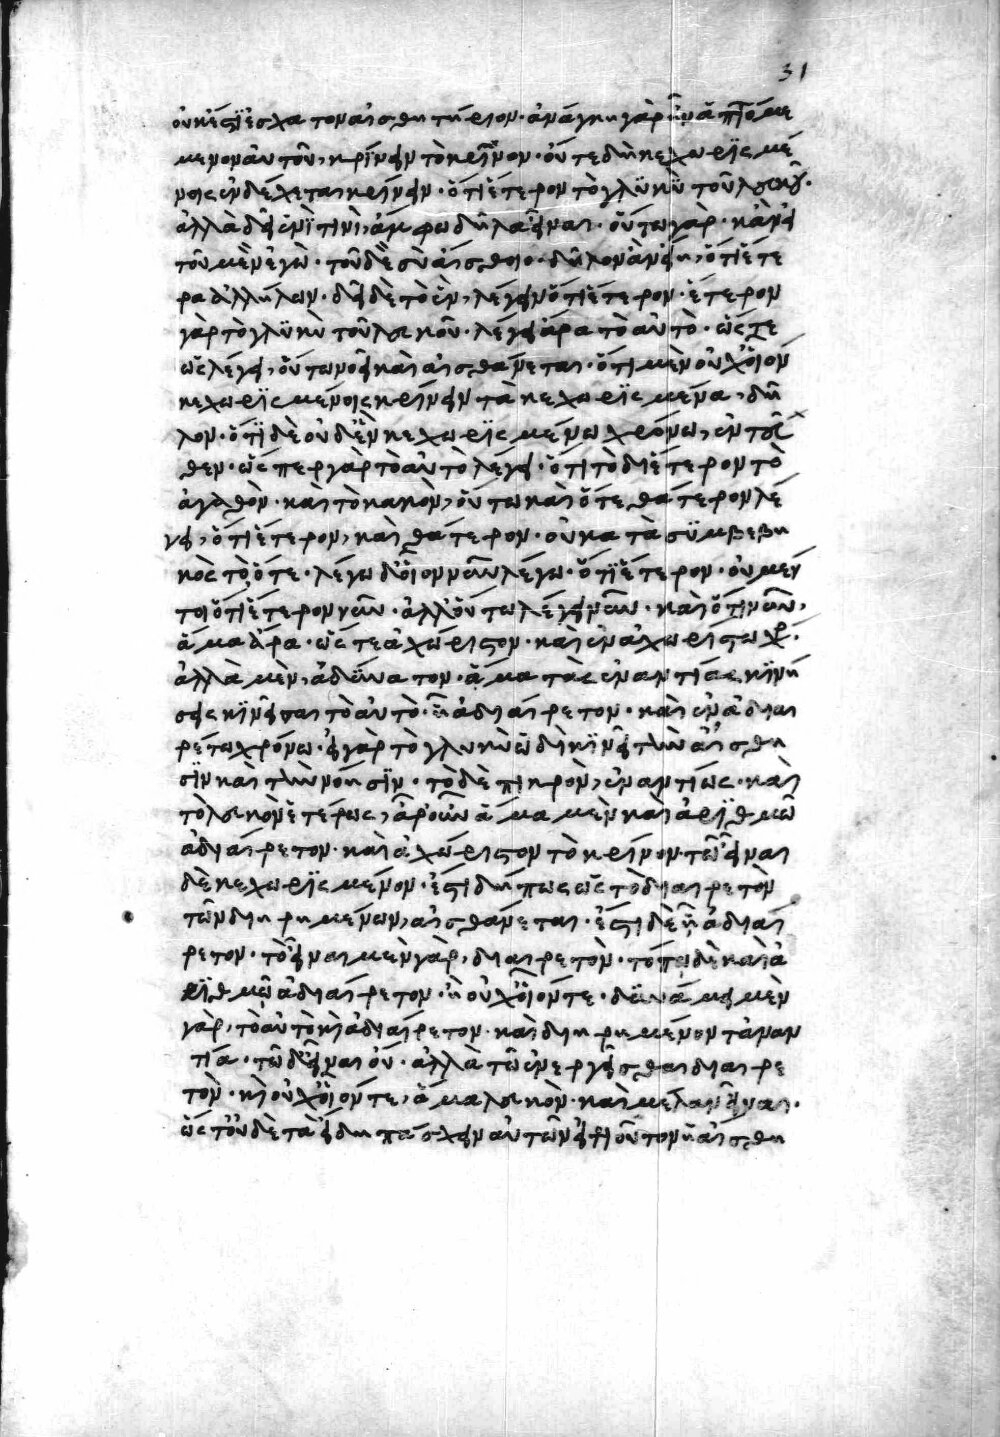 31
οὐκ ἔστι ἔσχατον αἰσθητήριον· ἀνάγκη γὰρ ἦν ἁπτόμε
μενον αὐτοῦ, κρίνειν τὸ κρῖνον· οὔτε δὴ κεχωρισμέ
νοις ἐνδέχεται κρίνειν· ὅτι ἕτερον τὸ γλυκὺ τοῦ λευκοῦ·
ἀλλὰ δεῖ ἑνί τινι, ἄμφω δῆλα εἶναι· οὕτω γὰρ· κἂν εἰ
τοῦ μὲν ἐγὼ· τοῦ δὲ σὺ αἴσθοιο· δῆλον ἂν εἴη, ὅτι ἕτε
ρα ἀλλήλων· δεῖ δὲ τὸ ἓν, λέγειν ὅτι ἕτερον· ἕτερον
γὰρ τὸ γλυκὺ τοῦ λευκοῦ· λέγει ἄρα τὸ αὐτὸ· ὥστε
ὡς λέγει, οὕτω νοεῖ καὶ αἰσθάνεται· ὅτι μὲν οὐχ οἷόν
κεχωρισμένοις κρίνειν τὰ κεχωρισμένα, δῆ
λον· ὅτι δὲ οὐδ' ἐν κεχωρισμένω χρόνω, ἐντεῦ
θεν· ὥσπερ γὰρ τὸ αὐτὸ λέγει· ὅτι τὸ δι ἕτερον τὸ
ἀγαθὸν· καὶ τὸ κακὸν, οὕτω καὶ ὅτε θάτερον λέ
γει, ὅτι ἕτερον, καὶ θάτερον· οὐ κατὰ συμβεβη
κὸς τὸ, ὅτε· λέγω δ' οἷον νῦν λέγω· ὅτι ἕτερον· οὐ μέν
τοι ὅτι ἕτερον νῦν· ἀλλ' οὕτω λέγει νῦν· καὶ ὅτι νῦν,
ἅμα ἄρα· ὥστε ἀχώριστον· καὶ ἐν ἀχωρίστω χρ·
ἀλλὰ μὴν, ἀδύνατον· ἅμα τὰς ἐναντίας κινή
σεις κινεῖσθαι τὸ αὐτὸ· ἧ ἀδιαίρετον· καὶ ἐν ἀδιαι
ρέτω χρόνω· εἰ γὰρ τὸ γλυκὺ ὡδὶ κινεῖ τὴν αἴσθη
σιν καὶ τὴν νόησιν· τὸ δὲ πικρὸν, ἐναντίως· καὶ
τὸ λευκὸν ἑτέρως, ἆρ' οὖν ἅμα μὲν καὶ ἀριθμῶ
ἀδιαίρετον· καὶ ἀχώριστον τὸ κρῖνον· τῶ εἶναι
δὲ κεχωρισμένον· ἔστι δή πως ὡς τὸ διαιρετὸν
τῶν διηρημένων, αἰσθάνεται· ἔστι δὲ ἧ ἀδιαί
ρετον· τὸ εἶναι μὲν γὰρ, διαιρετὸν· τόπω δὲ καὶ ἀ
ριθμῶ ἀδιαίρετον· ἢ οὐχ οἷόν τε· δυνάμει μὲν
γὰρ, τὸ αὐτὸ κὶ ἀδιαίρετον· καὶ διηρημένον τἀναν
τία· τῶ δ' εἶναι οὔ· ἀλλὰ τῶ ἐνεργεῖσθαι διαιρε
τὸν· κὶ οὐχ οἷόν τε, ἅμα λευκὸν· καὶ μέλαν εἶναι·
ὥστ' οὐδὲ τὰ εἴδη πάσχειν αὐτῶν, εἰ τοιοῦτον ἡ αἴσθη